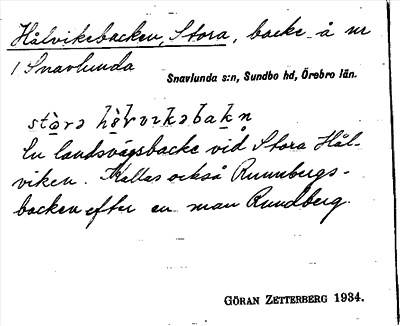 Hålvikebacken, Stora, backe å nr
1 Snavlunda
Snavlunda s:n, Sundbo hd, Örebro län.
En landsvägsbacke vid Stora Hål-
viken. Kallas också Runnbergs-
backen efter en man Rundberg.
GÖRAN ZETTERBERG 1934.